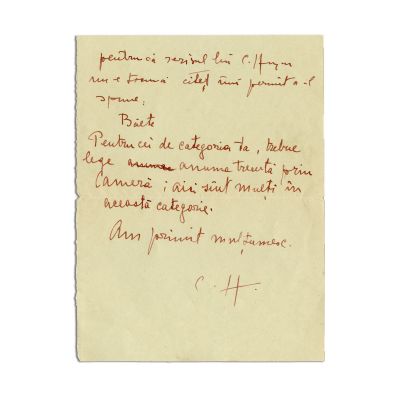 pentrucă scrisul lui C. Hașu
nu-e tocmai citeț îmi permit a-l
spune:
Băete
Pentru cei de categoria ta, trebue
lege anume anume trecută prin
Cameră; aici sînt mulți în
această categorie.
Am primit mulțumesc.
C. H.